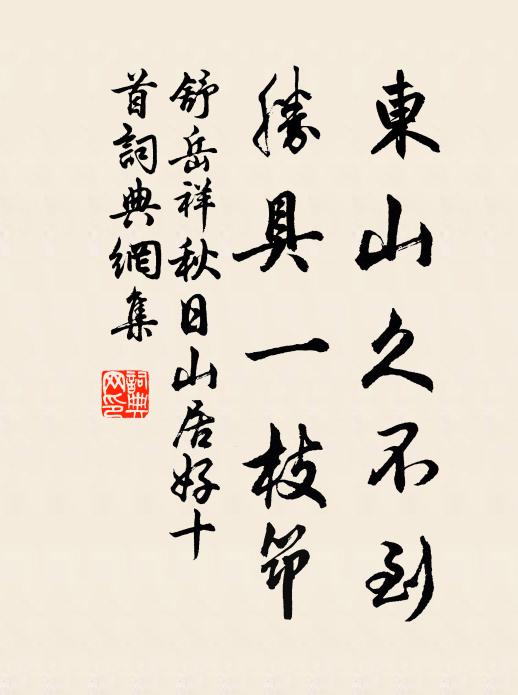 東山久不到
勝具一枝筇
舒岳祥秋日山居好十
首詞典網集
詞典
网印